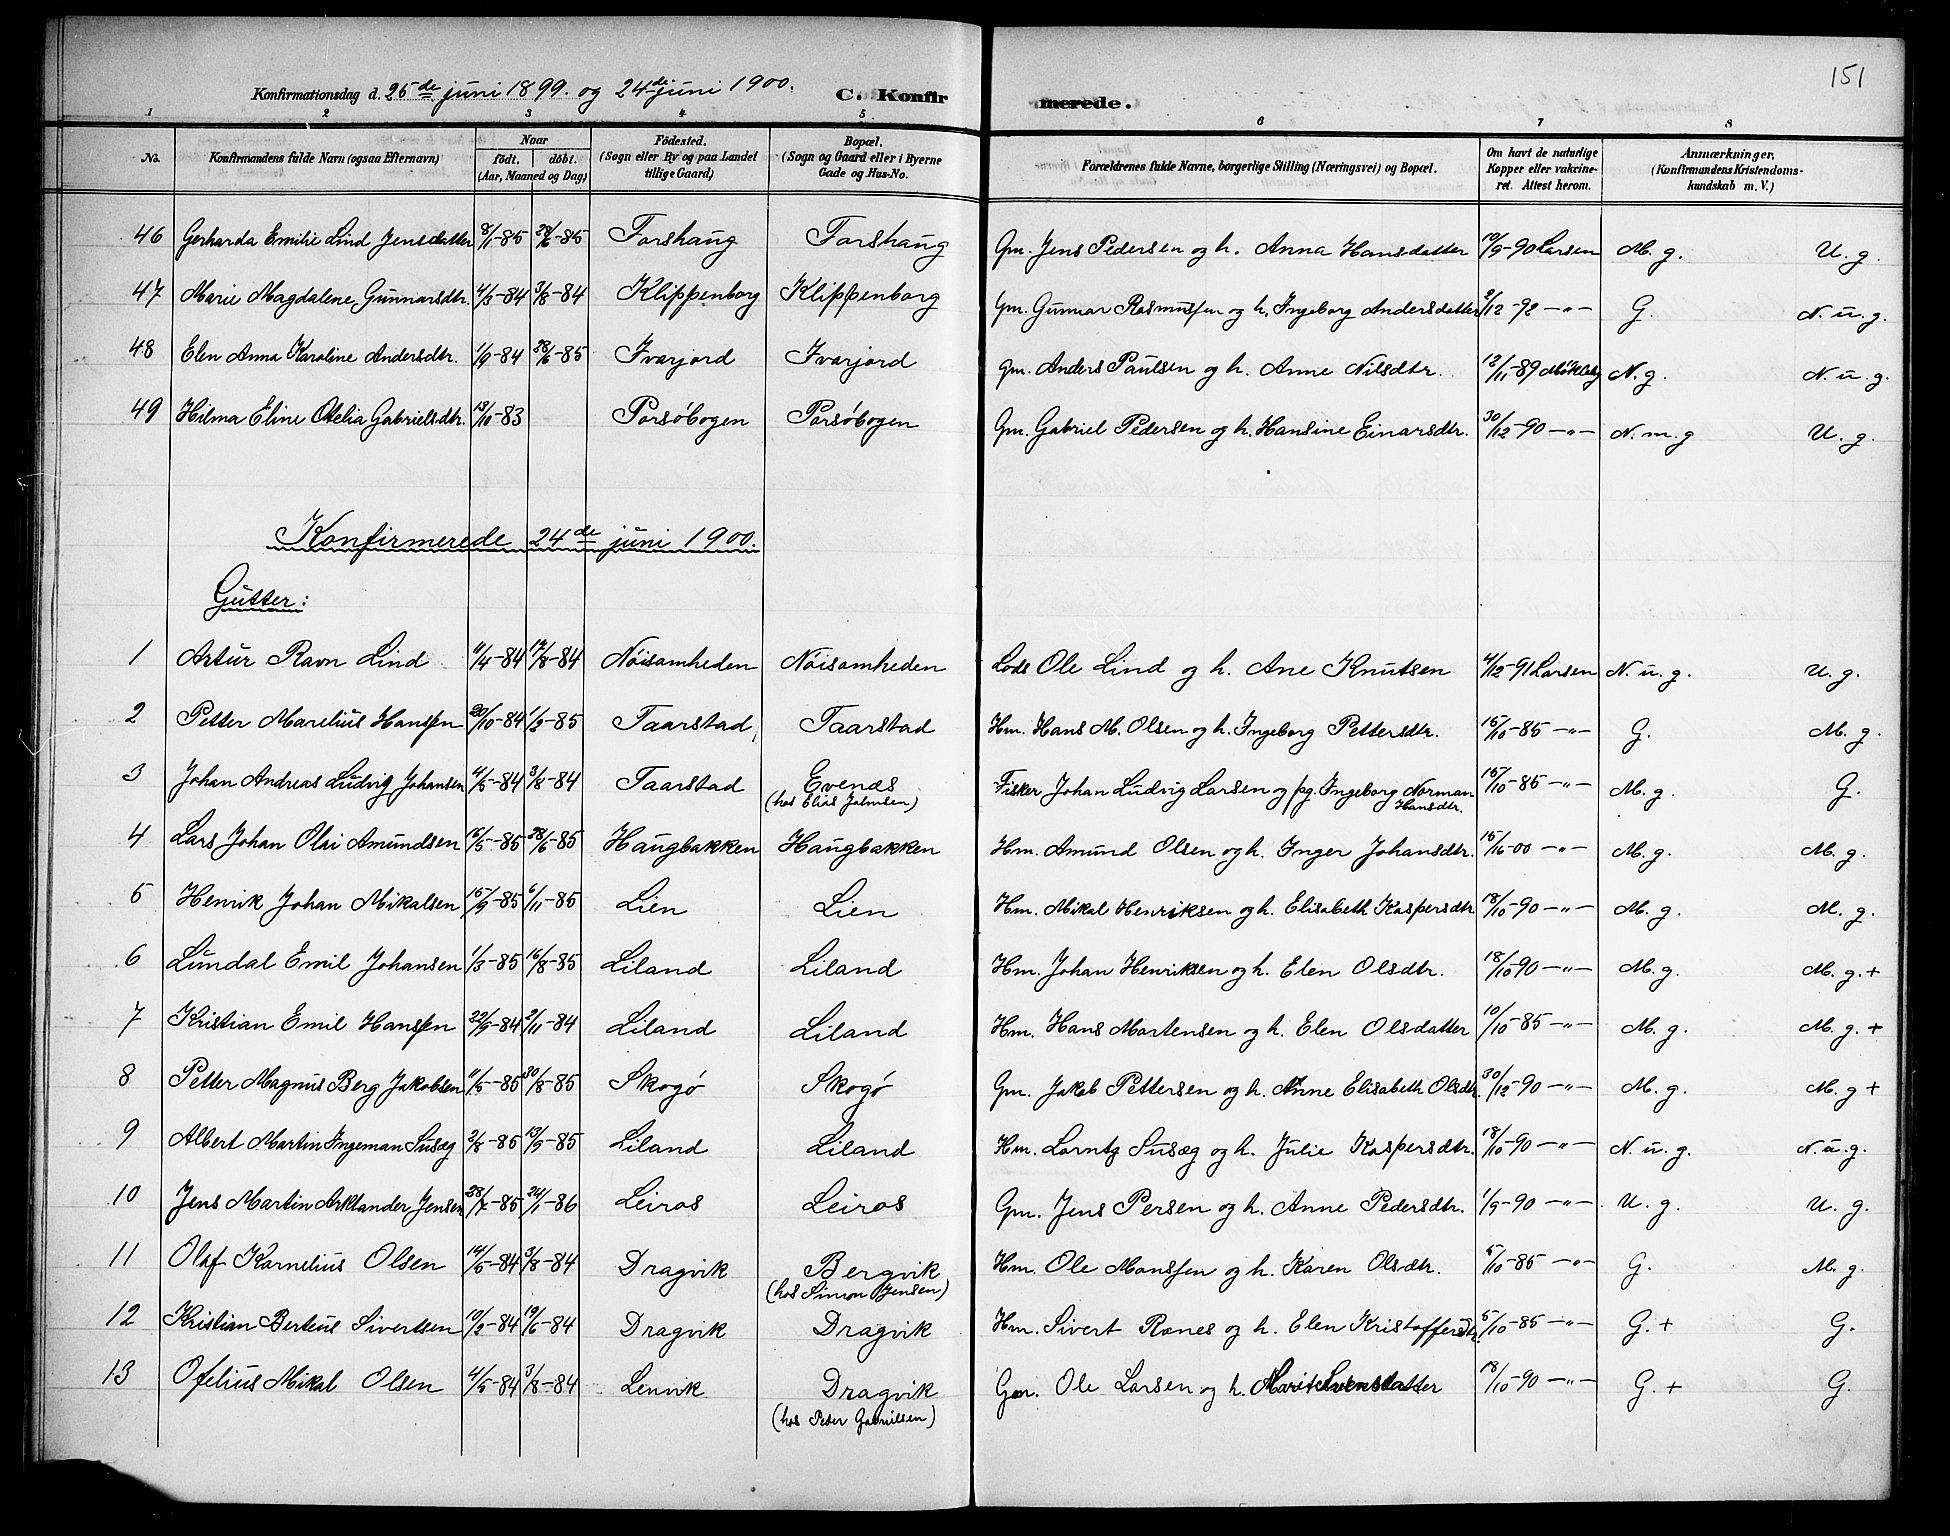 151
Konfirmationsdag d. 25de juni 1899. og 24de juni 1900. C. Konfir merede.
1 2 3 4 5 6 7 8
No. Konfirmandens fulde Navn (ogsaa Efternavn) Naar født. døbt. (Aar, Maaned og Dag) Fødested. (Sogn eller By og paa Landet tillige Gaard) Bopæl. (Sogn og Gaard eller i Byerne Gade og Hus-No. Forældrenes fulde Navne, borgerlige Stilling (Næringsvei) og Bopæl. Om havt de naturlige Kopper eller vakcineret. Attest herom. Anmærkninger, (Konfirmandens Kristendomskundskab m. V.)
46 Gerharda Emilie Lind Jensdatter 8/1-85 28/6-85 Forshaug Forshaug Gm. Jens Pedersen og h. Anna Hansdatter 10/9-90 Larsen M. g. U. g.
47 Marie Magdalene Gunnarsdtr. 4/3-84 3/8-84 Klippenborg Klippenborg Gm. Gunnar Rasmussen og h. Ingeborg Andersdatter 2/12-92 -"- G. N. u. g.
48 Elen Anna Karoline Andersdtr. 1/9-84 28/6-85 Ivarjord Ivarjord Gm. Anders Paulsen og h. Anne Nilsdtr. 12/11-89 N. g. N. u. g.
49 Hilma Eline Otelia Gabrielsdtr. 13/10-83 Porsøbogen Porsøbogen Gm. Gabriel Pedersen og h. Hansine Einarsdtr. 30/12-90 -"- N. m. g U. g.
Konfirmerede 24de juni 1900.
Gutter:
1 Artur Ravn Lind 11/4-84 17/8-84 Nøisomheden Nøisomheden Lods Ole Lind og h. Ane Knutsen 4/12-91 Larsen N. u. g. U. g.
2 Petter Marelius Hanssen 20/10-84 1/2-85 Taarstad Taarstad Hm. Hans M. Olsen og h. Ingeborg Pettersdtr. 15/10-85 -"- G. M. g.
3 Johan Andreas Ludvig Johansen 4/5-84 3/8-84 Taarstad Evenes Fisker Johan Ludvig Larsen og pg. Ingeborg Norman Hansdtr. 15/10-85 -"- M. g. G.
(hos Elias Johnsen)
4 Lars Johan Olai Amundsen 16/5-85 28/6-85 Haugbakken Haugbakken Hm. Amund Olsen og h. Inger Johansdtr. 15/16-00 -"- M. g. M. g.
5 Henrik Johan Mikalsen 15/9-85 6/11-85 Lien Lien Hm. Mikal Henriksen og h. Elisabeth Kaspersdtr. 18/10-90 -"- M. g. M. g.
6 Lundal Emil Johansen 1/3-85 16/8-85 Liland Liland Hm. Johan Henriksen og h. Elen Olsdtr. 18/10-90 -"- M. g. M. g. +
7 Kristian Emil Hanssen 22/9-84 2/11-84 Liland Liland Hm. Hans Martensen og h. Elen Olsdatter 10/10-85 -"- M. g. M. g. +
8 Petter Magnus Berg Jakobsen 11/5-85 30/8-85 Skogø Skogø Gm. Jakob Pettersen og h. Anne Elisabeth Olsdtr. 30/12-90 -"- M. g. M. g +
9 Albert Martin Ingeman Susæg 2/8-85 13/9-85 Liland Liland Hm. Lorntz Susæg og h. Julie Kaspersdtr. 18/10-90 -"- N. u. g. N. u. g.
10 Jens Martin Arktander Jensen 28/7-85 24/1-86 Leiros Leiros Gm. Jens Persen og h. Anne Pedersdtr. 1/9-90 -"- U. g. U. g.
11 Olaf Kornelius Olsen 14/5-84 3/8-84 Dragvik Bergvik Hm. Ole Monssen og h. Karen Olsdtr. 5/10-85 -"- G. M. g.
(hos Simon Jensen)
12 Kristian Berteus Sivertsen 10/2-84 19/6-84 Dragvik Dragvik Hm. Sivert Rones og h. Elen Kristoffersdtr. 5/10-85 -"- G. + G.
13 Ofelius Mikal Olsen 4/5-84 3/8-84 Lenvik Dragvik Gm. Ole Larsen og h. Marit Svensdatter 18/10-90 -"- G. + G.
(hos Peder Gabrielsen)